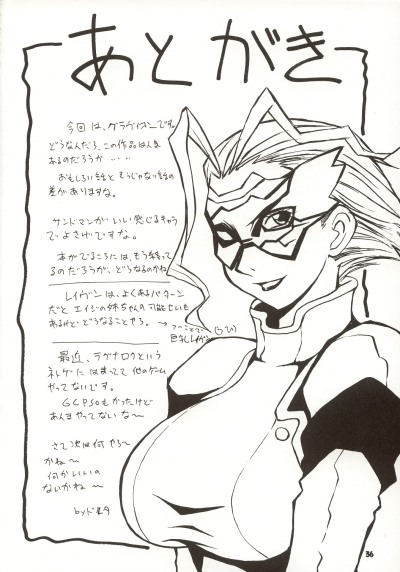 あとがき
今回は、グラヴィオンです。
どうなんだろ、この作品は人気
あるのだろうか……
おもしろい話とそうじゃない話の
差がありますな。
サンドマンがいい感じなキャラ
でよさげですな。
本がでるころには、もう終ってる
るのだろうが、どうなるのかね
レイヴンは、よくあるパターン
だとエイジの姉ちゃんの可能せいも
あるけどどうなることやら。
→ つーことで、
巨乳レイヴン
最近、ラグナロクという
ネトゲにはまってて他のゲーム
やってないです。
GCPSOもかったけど
あんまやってないな〜
さて次は何やろ〜
かね〜
何かいいの
ないかね〜
by
36